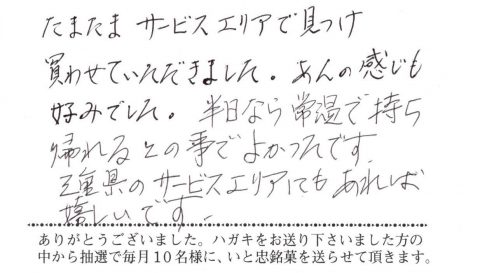 たまたま サービスエリアで見つけ
買わせていただきました。あんの感じも
好みでした。半日なら常温で持ち
帰れるとの事でよかったです
三重県のサービスエリアにもあれば
嬉しいです。
ありがとうございました。ハガキをお送り下さいました方の
中から抽選で毎月10名様に、いと忠銘菓を送らせて頂きます。